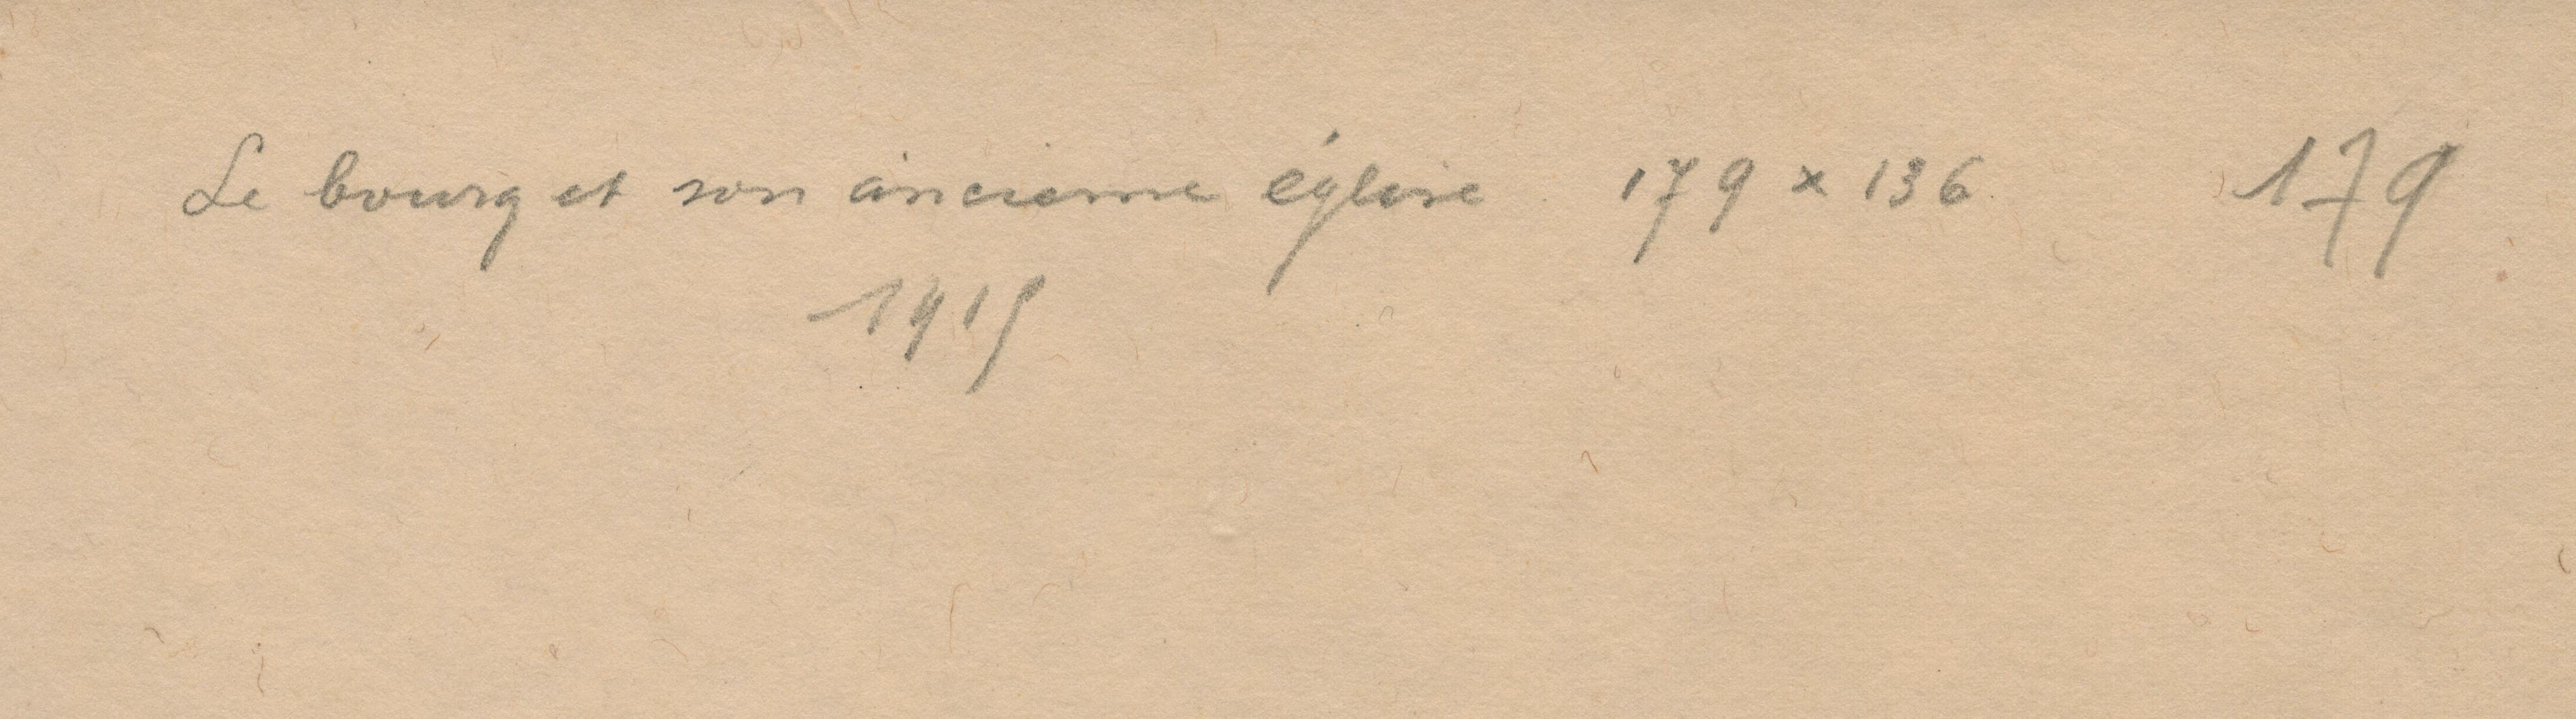 Le bourg et son ancienne église 179 x 136 179
1915